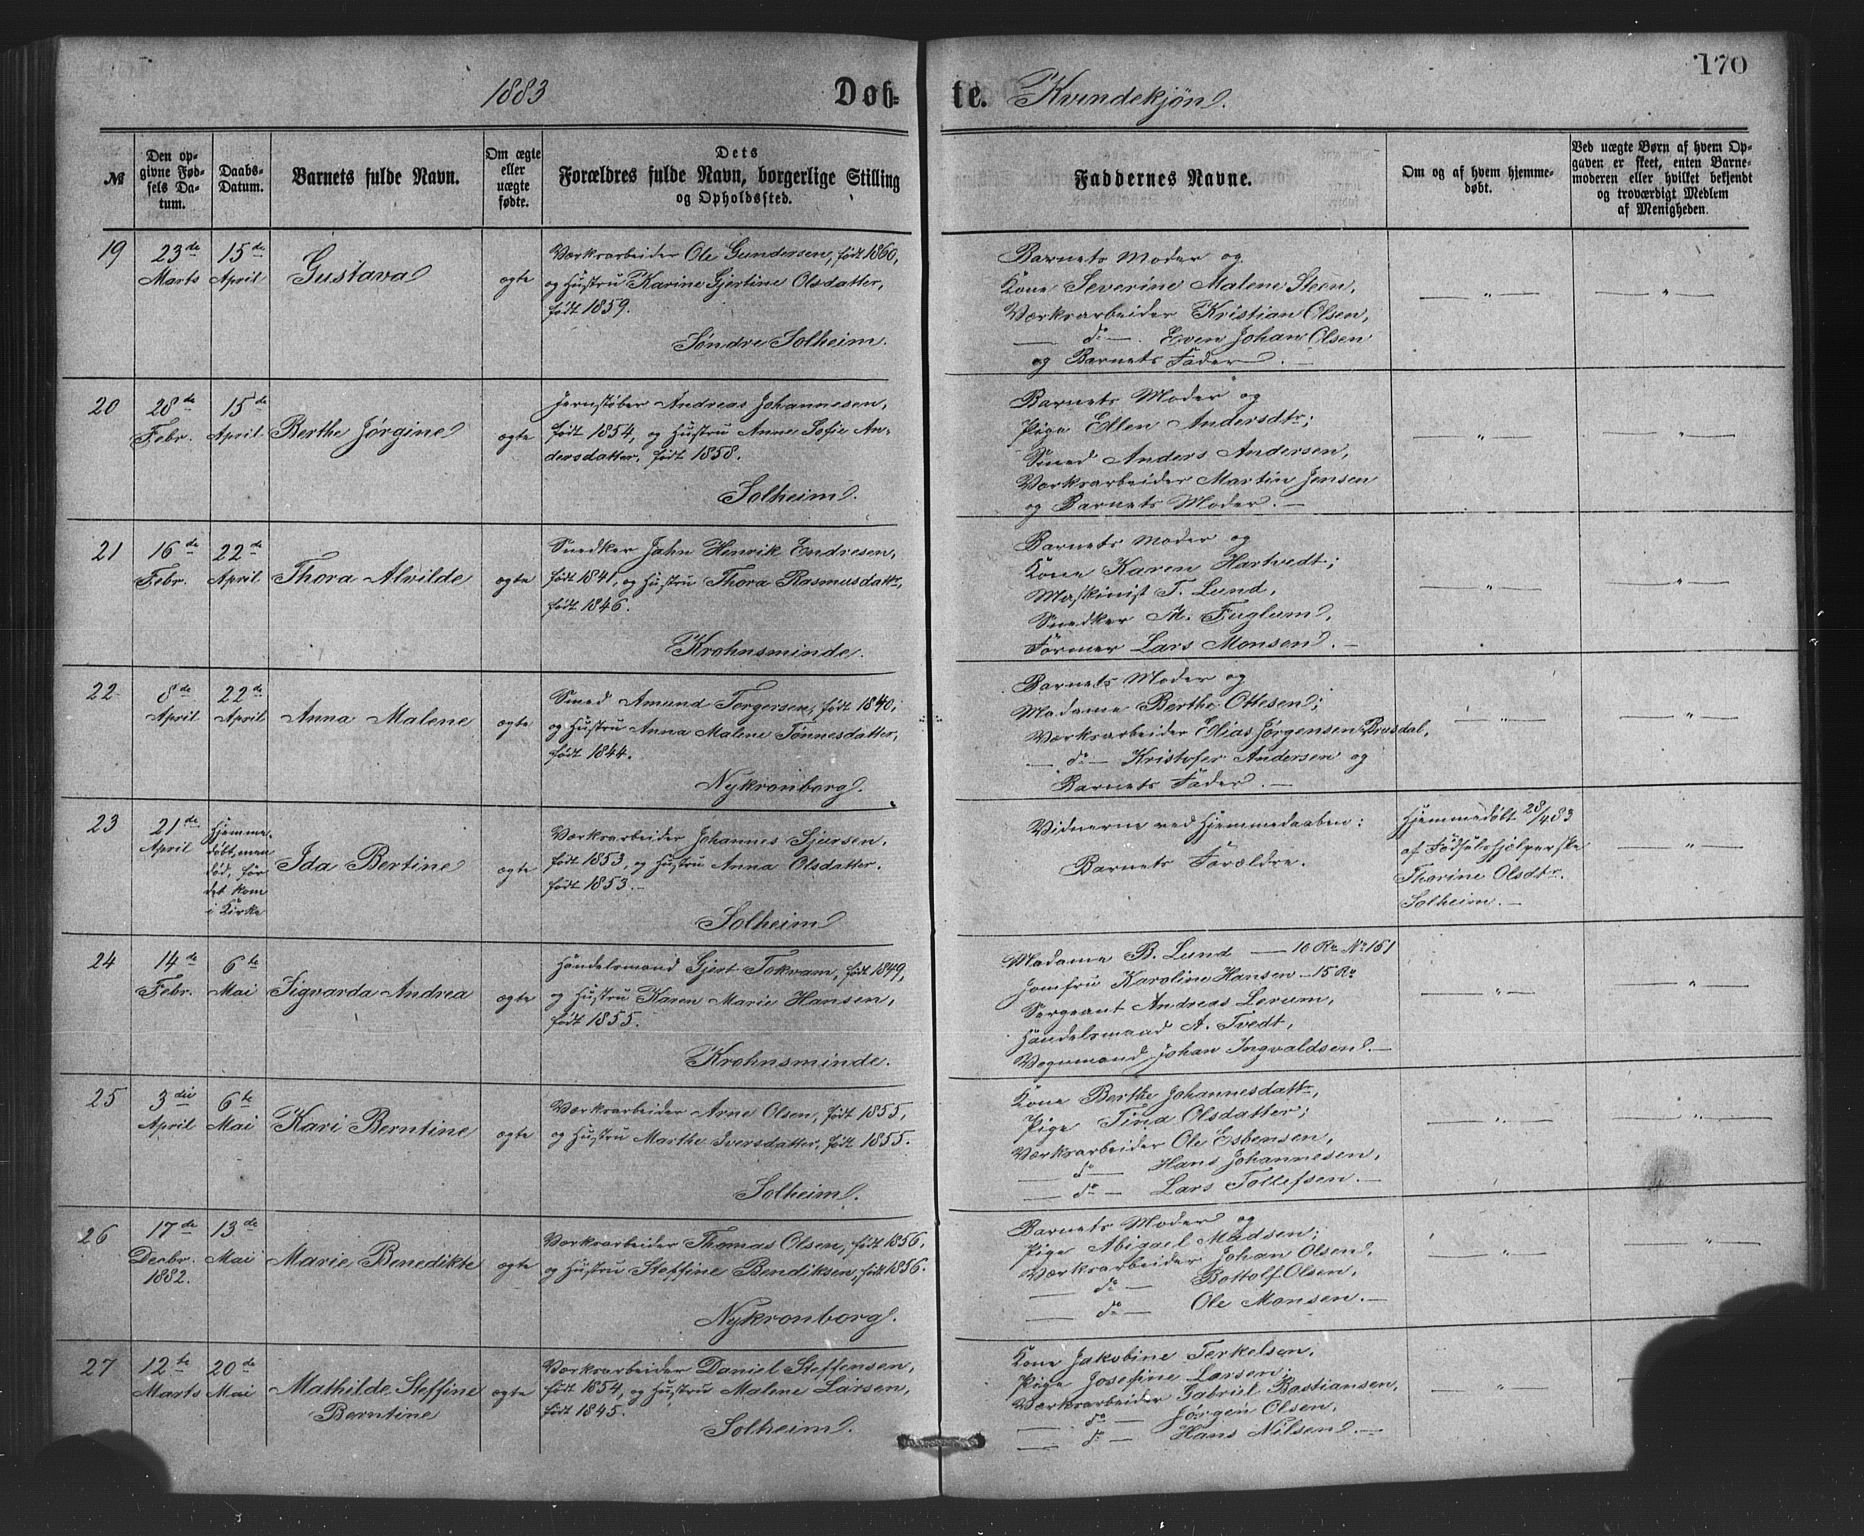 170
1883
Døb-
te. Kvindekjøn.
№
Den op-
givne Fød-
sels Da-
tum.
Daabs-
Datum.
Barnets fulde Navn.
Om ægte
eller
uægte
fødte.
Dets
Forældres fulde Navn, borgerlige Stilling
og Opholdssted.
Faddernes Navne.
Om og af hvem hjemme-
døbt.
Ved uægte Børn af hvem Op-
gaven er skeet, enten Barne-
moderen eller hvilket bekjendt
og troværdigt Medlem
af Menigheden.
19
23de
Marts
15de
April
Gustava
ægte
Værksarbeider Ole Gundersen, født 1860,
og Hustru Karine Gjertine Olsdatter,
født 1859.
Søndre Solheim.
Barnets Moder og
Kone Severine Malene Steen,
Værksarbeider Kristian Olsen,
— do — Even Johan Olsen
og Barnets Fader. —
— " —
— " —
20
28de
Febr.
15de
April
Berthe Jørgine
ægte
Jernstøber Andreas Johannesen,
født 1854, og Hustru Anne Sofie An-
dersdatter, født 1858.
Solheim.
Barnets Moder og
Pige Ellen Andersdtr;
Smed Anders Andersen,
Værksarbeider Martin Jensen
og Barnets Moder. —
— " —
— " —
21
16de
Febr.
22de
April
Thora Alvilde
ægte
Snedker Jahn Henrik Endresen,
født 1841, og Hustru Thora Rasmusdattr,
født 1846.
Krohnsminde.
Barnets Moder og
Kone Karen Hartvedt;
Maskinist T. Lund,
Snedker M. Fuglum,
Former Lars Monsen. —
— " —
— " —
22
8de
April
22de
April
Anna Malene
ægte
Smed Amund Torgersen, født 1840,
og Hustru Anna Malene Tønnesdatter,
født 1844.
Nykronborg.
Barnets Moder og
Madame Berthe Ottesen;
Værksarbeider Elias Jørgensen Brusdal,
— do — Kristofer Andersen og
Barnets Fader. —
— " —
— " —
23
21de
April
Hjemme-
døbt, men
død, før
det kom
i Kirke
Ida Bertine
ægte
Værksarbeider Johannes Sjursen,
født 1853, og Hustru Anna Olsdatter,
født 1853. —
Solheim
Vidnerne ved Hjemmedaaben:
Barnets Forældre.
Hjemmedøbt 28/4 83
af Fødselshjælperske
Thorine Olsdtr.
Solheim. —
— " —
24
14de
Febr.
6te
Mai
Sigvarda Andrea
ægte
Handelsmand Gjert Tokvam, født 1849,
og Hustru Karen Marie Hansen,
født 1855.
Krohnsminde.
Madame B. Lund — 10 Kr No 161
Jomfru Karoline Hansen — 15 Kr
Sergeant Andreas Lerum,
Handelsmand A. Tvedt,
Vognmand Johan Ingvaldsen. —
— " —
— " —
25
3die
April
6te
Mai
Kari Berntine
ægte
Værksarbeider Arne Olsen, født 1855,
og Hustru Marthe Iversdatter, født 1855.
Solheim.
Kone Berthe Johannesdattr,
Pige Tina Olsdatter;
Værksarbeider Ole Esbensen,
— do — Hans Johannesen,
— do — Lars Tollefsen. —
— " —
— " —
26
17de
Decbr.
1882.
13de
Mai
Marie Benedikte
ægte
Værksarbeider Thomas Olsen, født 1856,
og Hustru Steffine Bendiksen, født 1856.
Nykronborg.
Barnets Moder og
Pige Abigael Madsen;
Værksarbeider Johan Olsen,
— do — Bottolf Olsen,
— do — Ole Monsen. —
— " —
— " —
27
12te
Marts
20de
Mai
Mathilde Steffine
Berntine
ægte
Værksarbeider Daniel Steffensen,
født 1854, og Hustru Malene Larsen,
født 1845.
Solheim.
Kone Jakobine Terkelsen,
Pige Josefine Larsen;
Værksarbeider Gabriel Bastiansen,
— do — Jørgen Olsen,
— do — Hans Nilsen. —
— " —
— " —